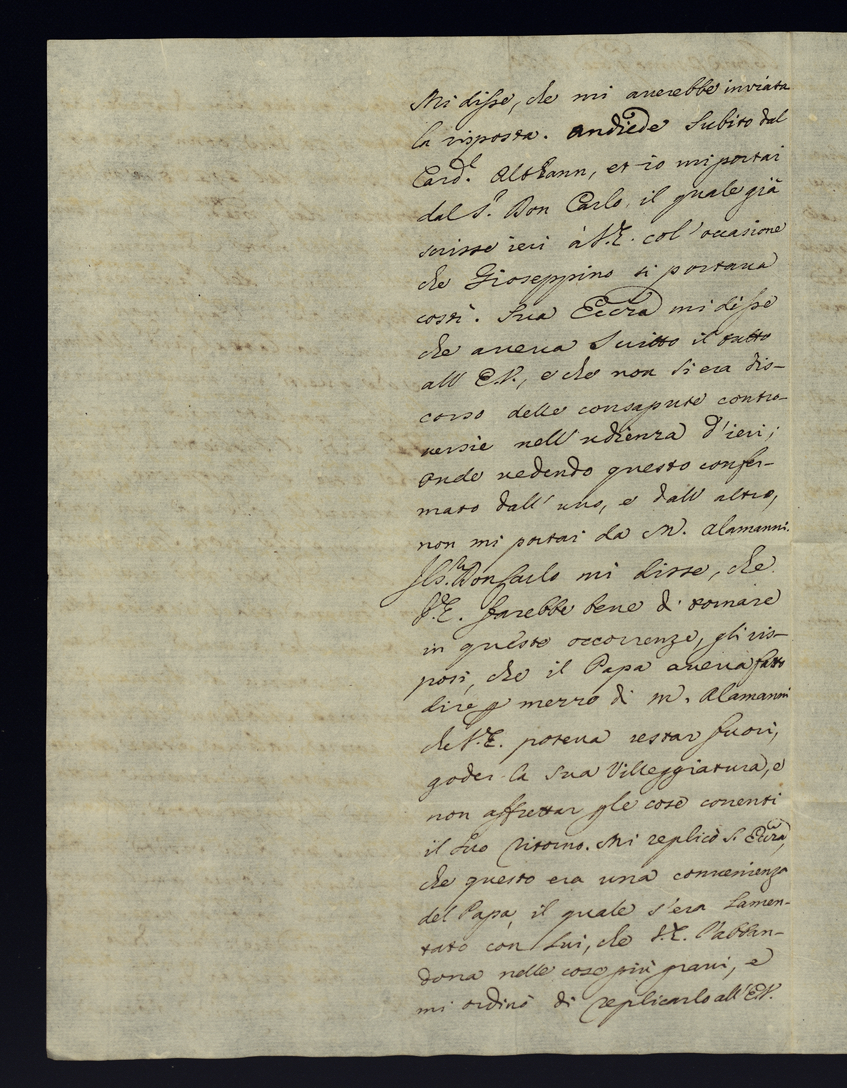 Mi disse, che mi averebbe inviata
la risposta. Andiede subito dal
Card.l Althann, et io mi portai
dal S.r Don Carlo, il quale già
scrisse ieri à V.E. col' occasione
che Gioseppino si portava
costì. Sua Ecc̃za mi disse
che aveva scritto il tutto
all' E.V., e che non si era dis-
corso delle consapute contro-
versie nell' udienza d'ieri;
onde vedendo questo confer-
mato dall' uno, e dall' altro,
non mi portai da M. Alamanni.
Il S.r Don Carlo mi disse, che
V.E. farebbe bene di tornare
in queste occorrenze, gli ris-
posi, che il Papa aveva fatto
dire p mezzo di M. Alamanni
che V.E. poteva restar fuori,
goder la sua Villeggiatura, e
non affrettar p le cose correnti
il suo ritorno. Mi replicò S. Ecc̃za,
che questo era una convenienza
del Papa, il quale s'era lamen-
tato con lui, che V.E. l'abban-
dona nelle cose più gravi, e
mi ordinò di replicarlo all' E.V.